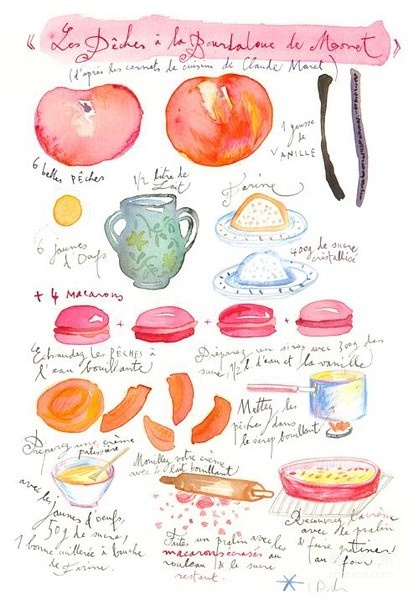 « Les Pêches à la Bourdaloue de Monet »
(d'après les carnets de cuisine de Claude Monet)
6 belles PÊCHES
1/2 litre de Lait
1 gousse de VANILLE
Farine
6 jaunes d'Oeufs
400g de sucre cristallisé
+ 4 MACARONS
+ + +
Echaudez les PÊCHES à
l'eau bouillante
Préparez un sirop avec 300g de
sucre, 1/2 l d'eau et la vanille
Mettez les
pêches dans
le sirop bouillant
Préparez une crème
patissière
avec les
jaunes d'oeufs,
50g de sucre,
1 bonne cuillerée à bouche
de Farine.
Mouillez votre crème
avec le lait bouillant
Faites un pralin avec les
macarons écrasés au
rouleau & le sucre
restant.
Recouvrez la crème
avec le pralin
& faire gratiner
au four